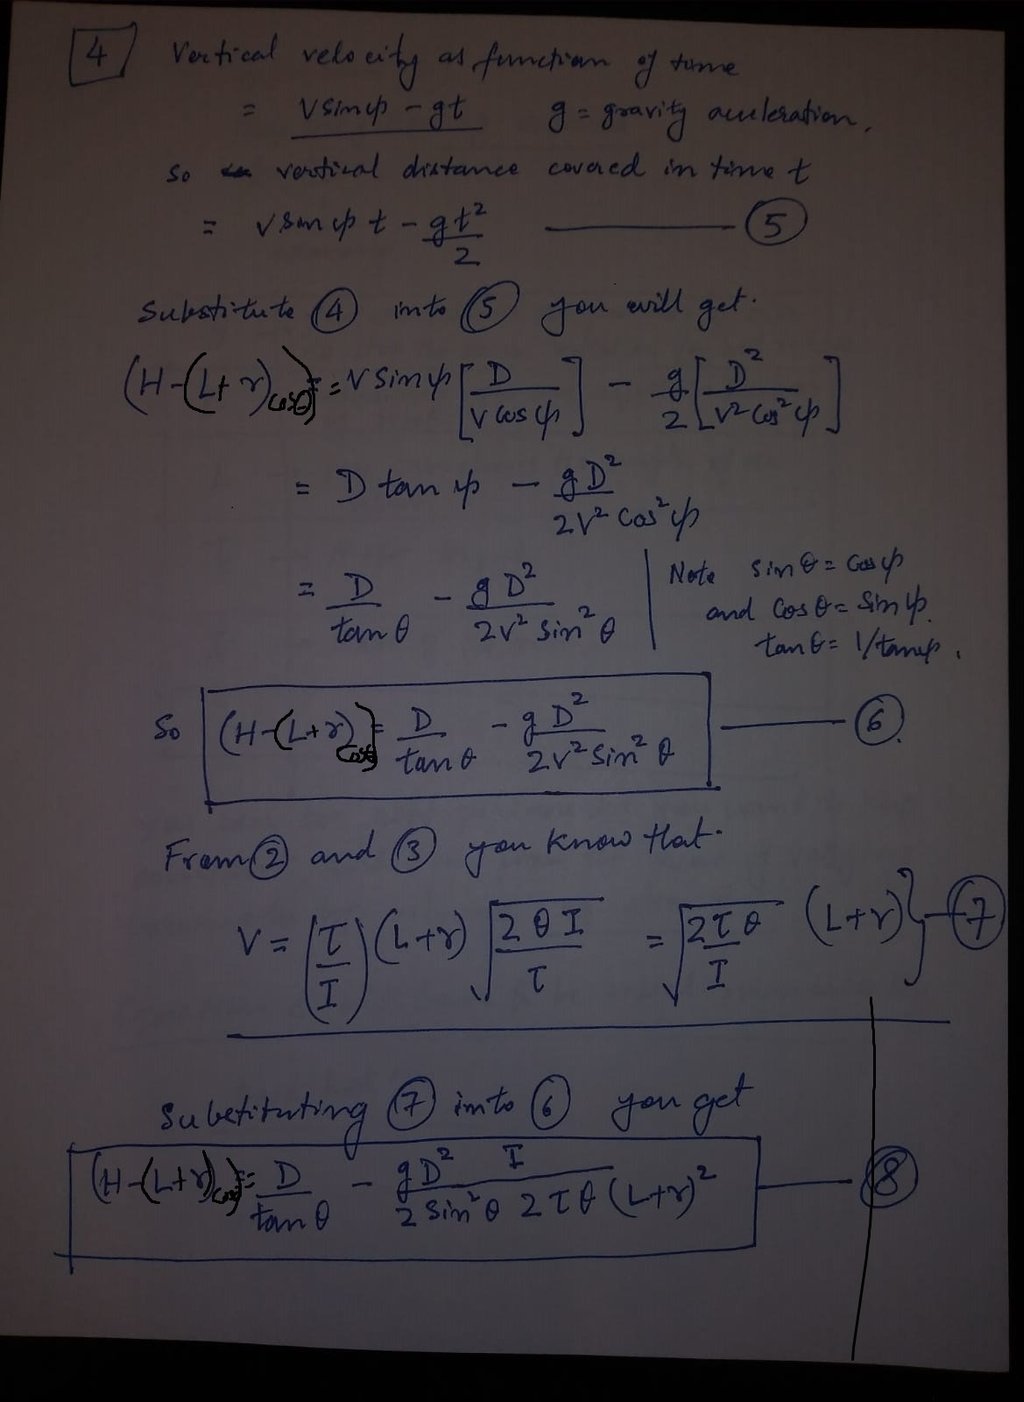 4 Vertical velocity as function of time
= V sin ψ - gt g = gravity acceleration,
so vertical distance covered in time t
= V sin ψ t - gt²/2 5
Substitute 4 into 5 you will get.
(H-(L+r)cosθ) = V sin ψ [D/(V cos ψ)] - g/2 [D²/(V² cos² ψ)]
= D tan ψ - gD²/(2V² cos² ψ)
= D/tan θ - gD²/(2V² sin² θ)
Note sin θ = cos ψ
and cos θ = sin ψ.
tan θ = 1/tan ψ.
So (H-(L+r)cosθ) = D/tan θ - gD²/(2V² sin² θ) 6
From 2 and 3 you know that.
V = (τ/I)(L+r)√(2θI/τ) = √(2τθ/I) (L+r)} 7
Substituting 7 into 6 you get
(H-(L+r)cosθ) = D/tan θ - gD² I/(2 sin² θ 2τθ (L+r)²) 8